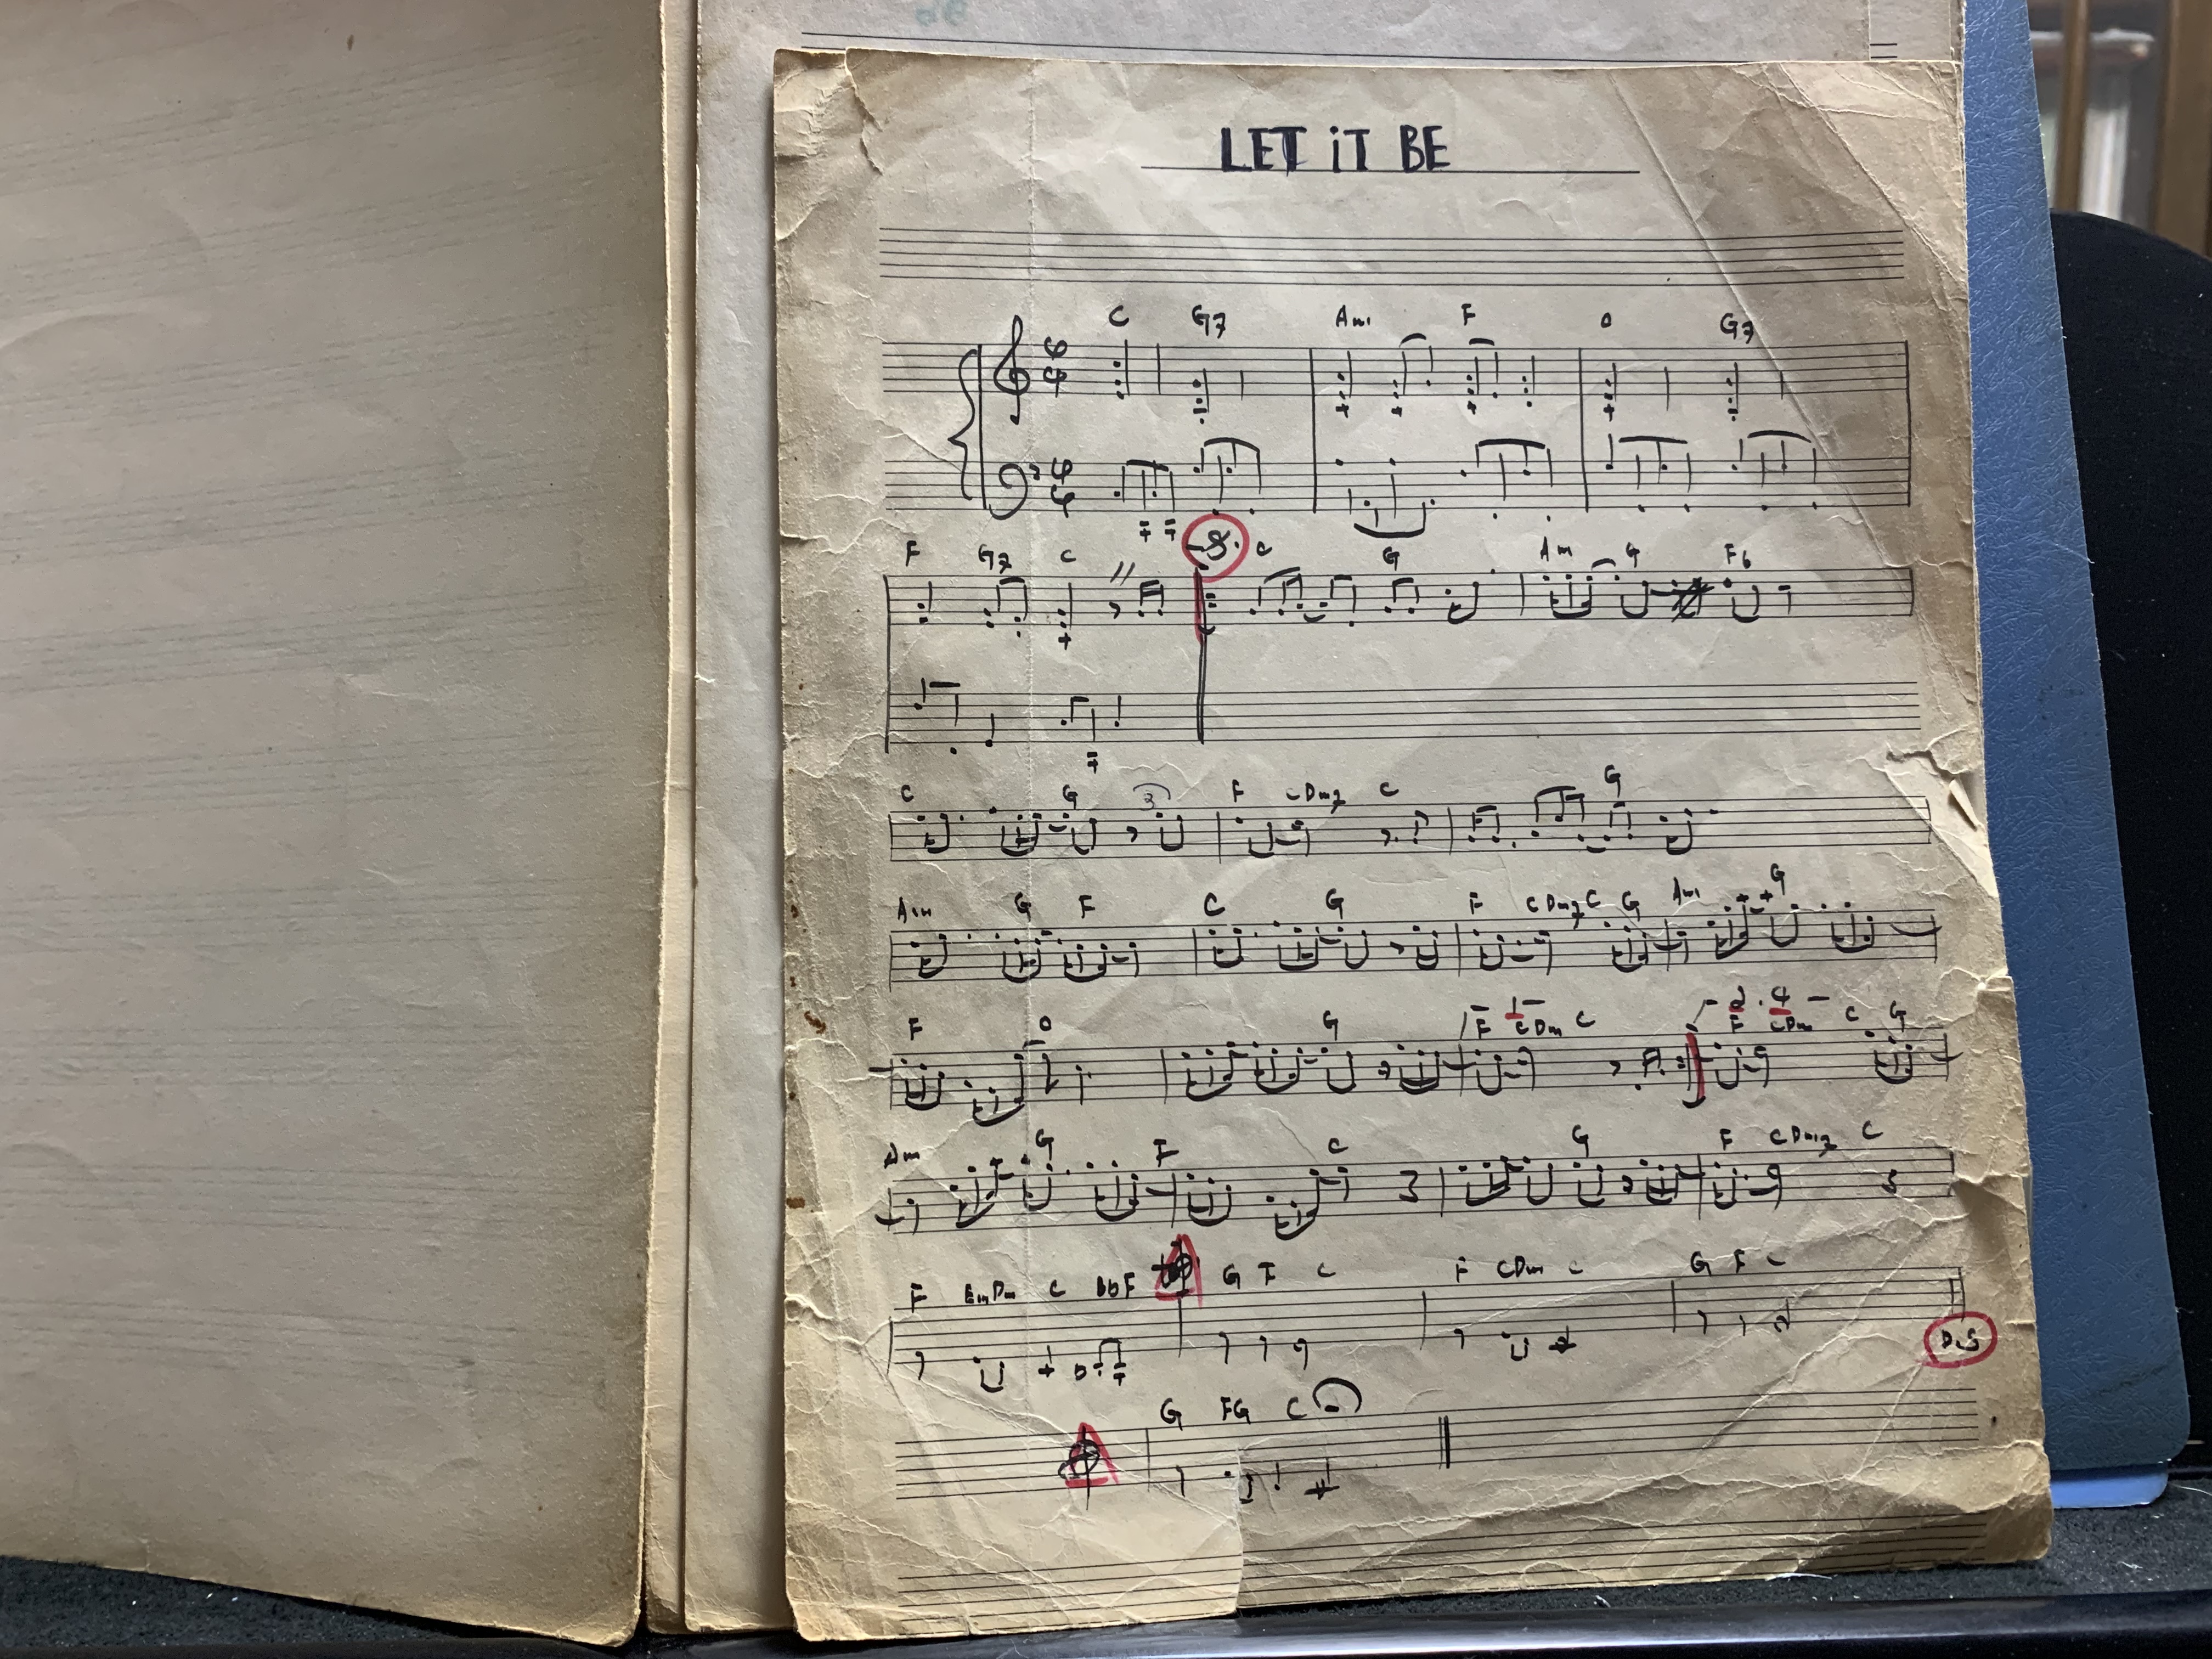 LET iT BE
C G7 Am F C G7
F G7 C C G Am G F6
C G 3 F C Dm7 C G
Am G F C G F C Dm7 C G Am G
F C G F 1 C Dm C 2. 4 F C Dm C G
Am G F C G F C Dm7 C
F Em Dm C Bb F G F C F C Dm C G F C
D.S
G F G C